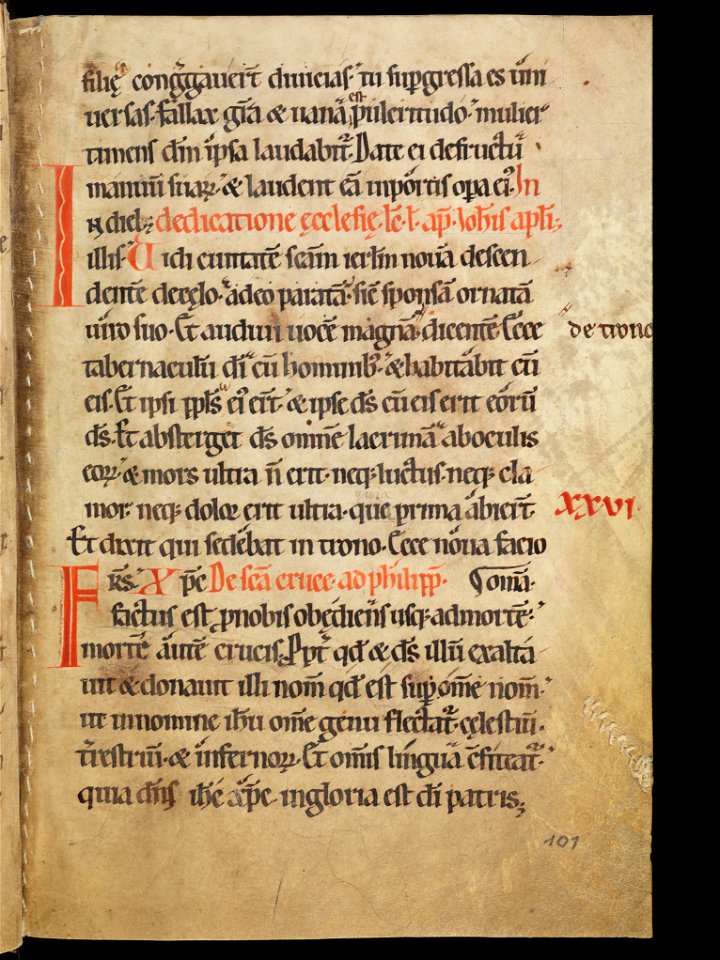 filię congͣgauer̄t diuicias· tu supgressa es uni
uersas· fallax gr̄a & uana est pulcritudo· mulier
timens dn̄m ipsa laudabit᷑· Date ei defructu
manuū suaꝝ· & laudent eā inportis oꝑa ei᾽· In
diebꝫ dedicatione ęcclesię· lc̄· l· ap̄· Iohis apl̄i·
illis· Uidi ciuitatē scām ierlm̄ nouā descen
dentē decęlo· adeo paratā· sic̄ sponsā ornatā
uiro suo· Et audiui uocē magnā dicentē· Ecce
de trono
tabernaculū dī cū hominibꝰ· & habitabit cū
eis· Et ipsi ppl̄s ei᾽ er̄t· & ipse ds̄ cū eis erit eorū
ds̄· Et absterget ds̄ omnē lacrimā aboculis
eoꝝ· & mors ultra n̄ erit· neqꝫ luctus· neqꝫ cla
mor· neqꝫ dolor erit ultra· que prima abier̄t·
XXVI·
Et dixit qui sedebat in trono· Ecce noua facio
Fr̄s· Xp̄c De scā cruce· ad philipp̄· omā·
factus est ꝓnobis obędiens usqꝫ admortē·
mortē autē crucis· Ppt᷑ qd̄ & ds̄ illū exalta
uit & donauit illi nom̄ qd̄ est supom̄e nom̄·
ut innomine ih̄u om̄e genu flectat᷑· cęlestiū·
t᷑restriū· & infernoꝝ· Et om̄is lingua c̄fiteat᷑·
quia dn̄s ih̄c xp̄c ingloria est dī patris;
101